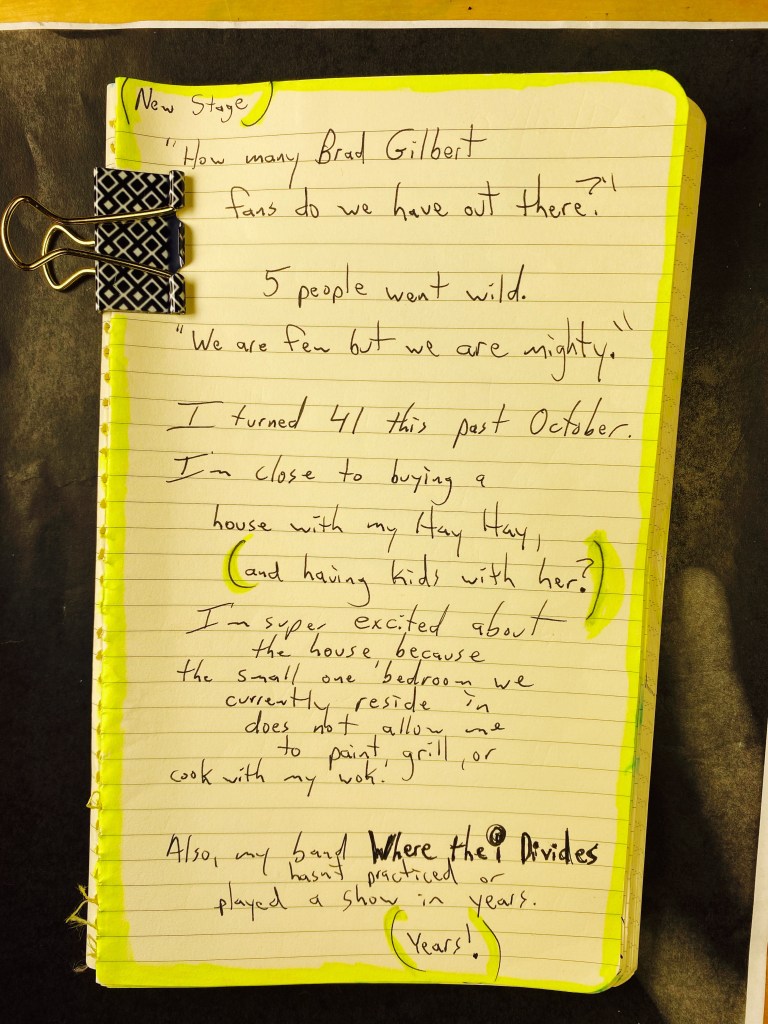 (New Stage)
"How many Brad Gilbert
fans do we have out there?"
5 people went wild.
"We are few but we are mighty."
I turned 41 this past October.
I'm close to buying a
house with my Hay Hay,
(and having kids with her?)
I'm super excited about
the house because
the small one bedroom we
currently reside in
does not allow me
to paint, grill, or
cook with my wok.
Also, my band Where the i Divides
hasn't practiced or
played a show in years.
(Years!)